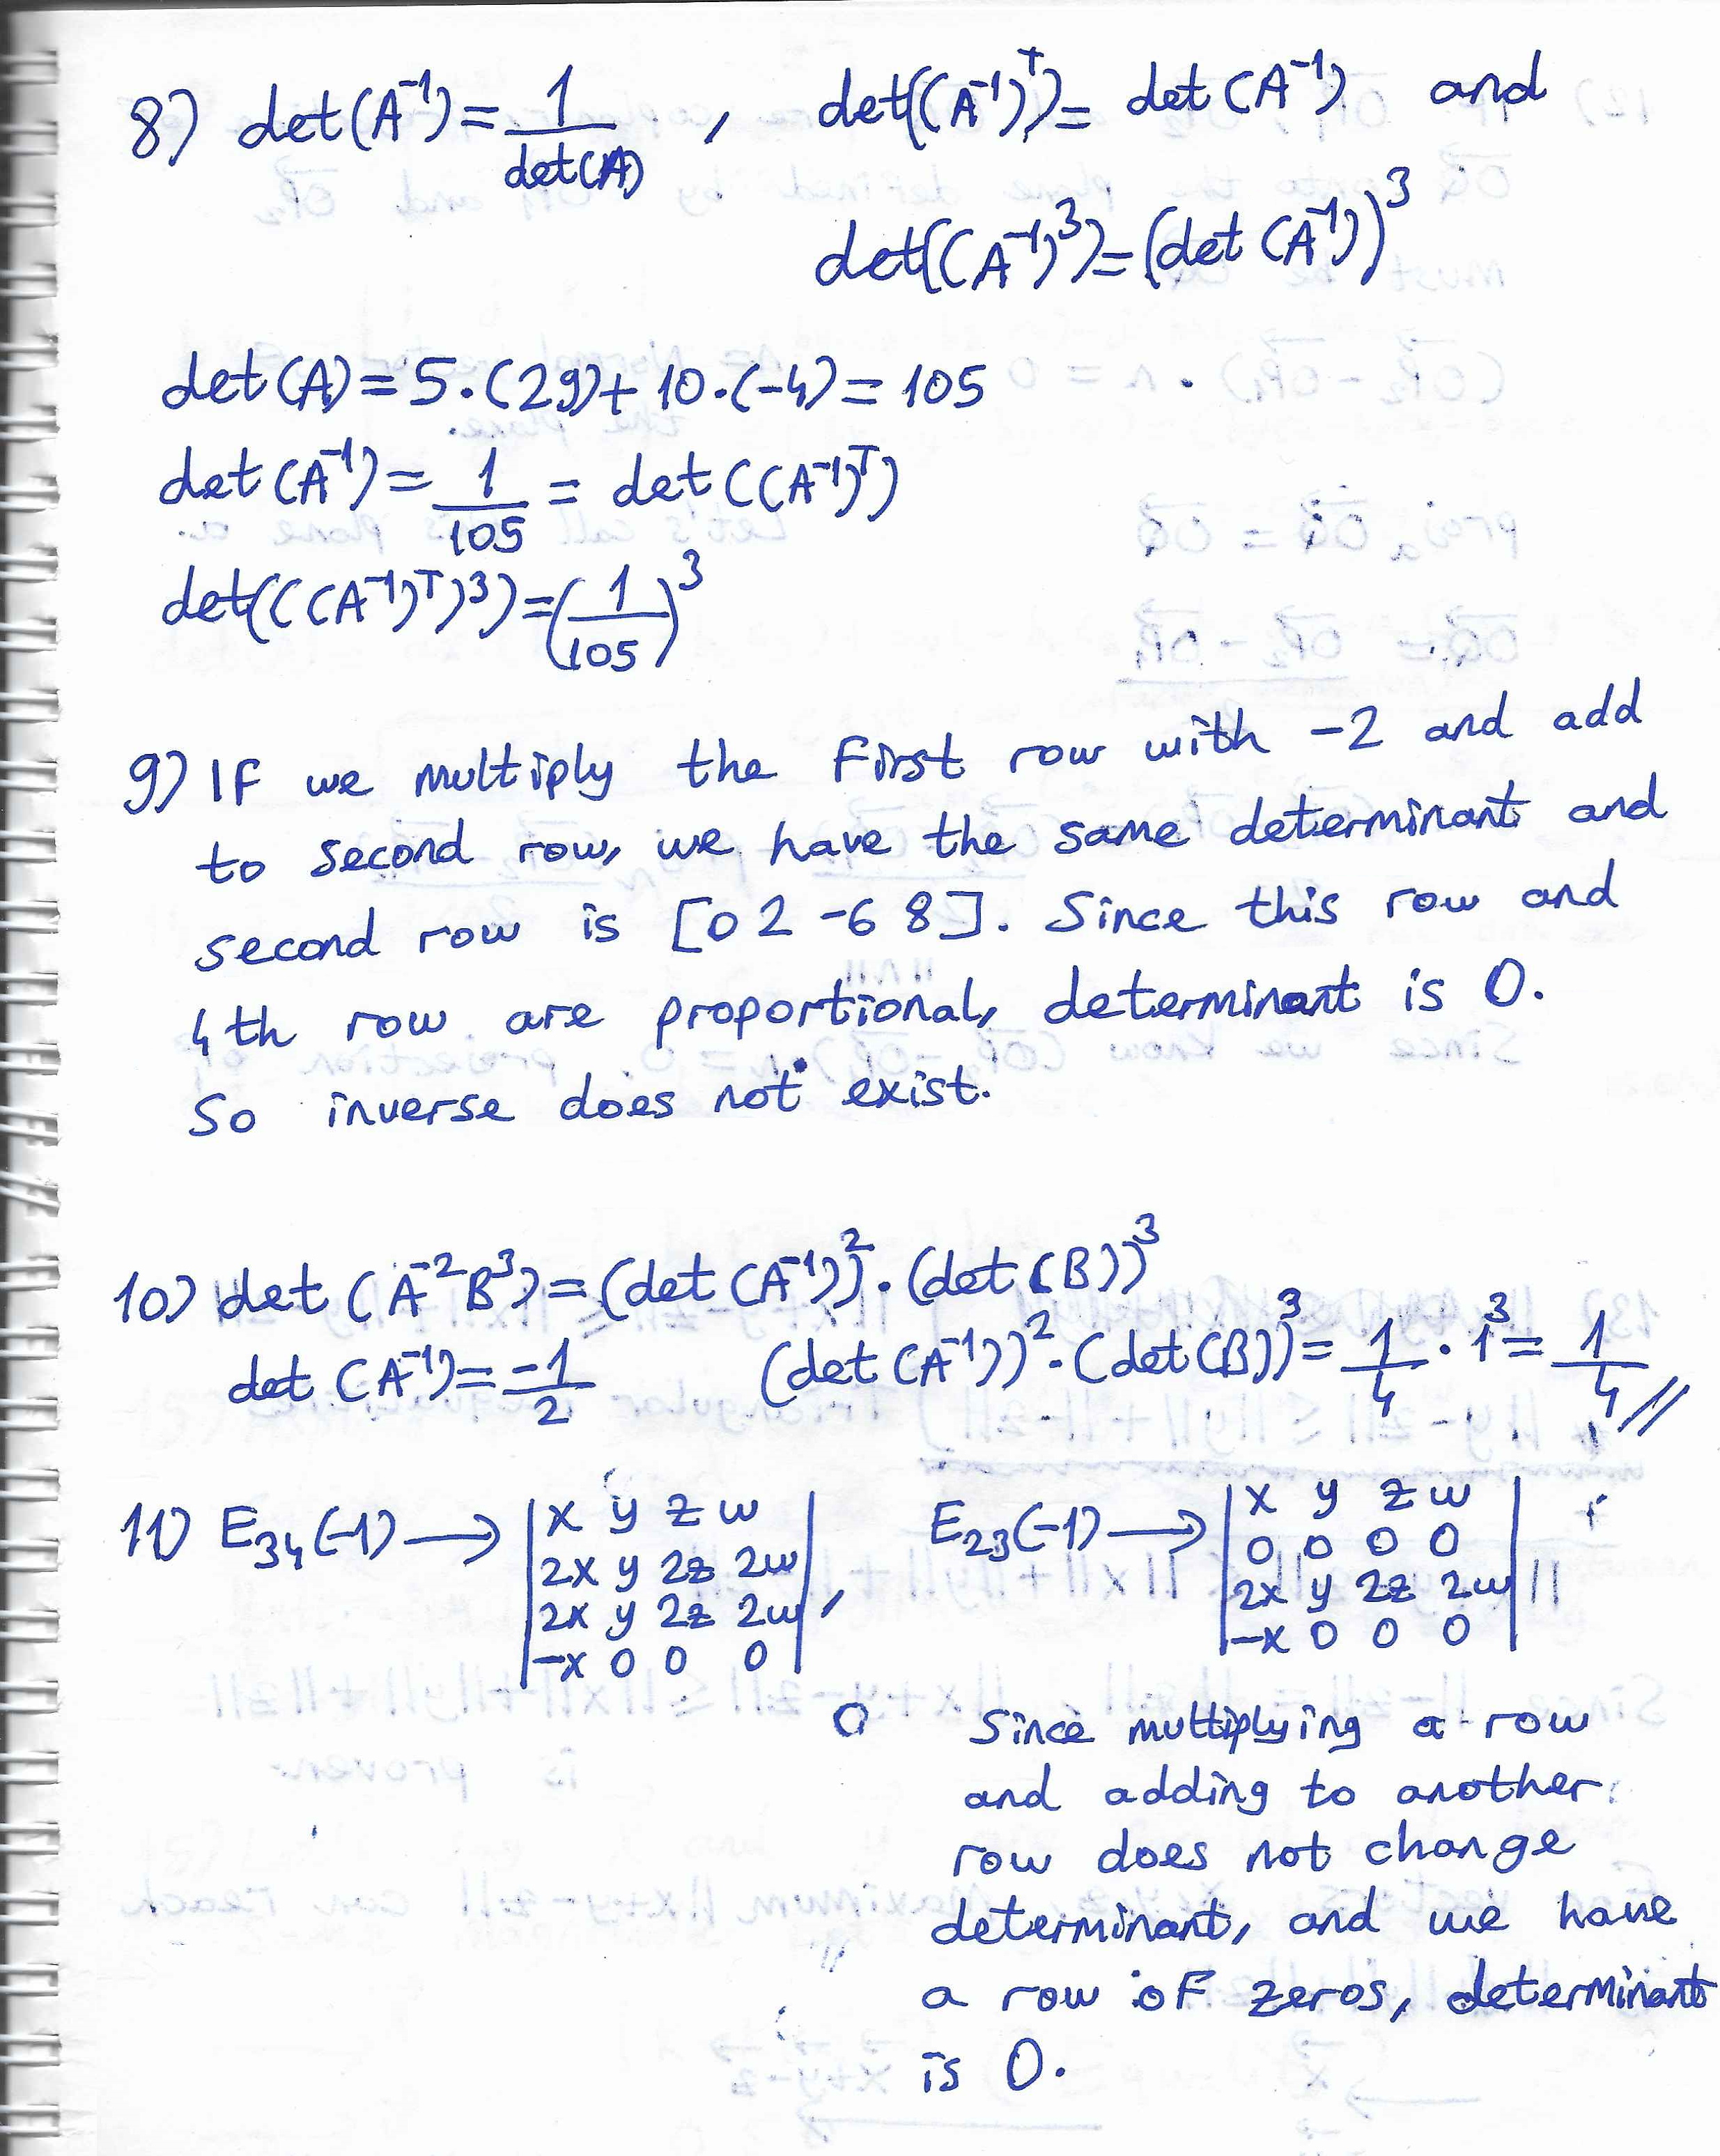 8) det(A⁻¹) = 1/det(A) , det((A⁻¹)ᵀ) = det(A⁻¹) and
det((A⁻¹)³) = (det(A⁻¹))³
det(A) = 5·(29) + 10·(-4) = 105
det(A⁻¹) = 1/105 = det((A⁻¹)ᵀ)
det(((A⁻¹)ᵀ)³) = (1/105)³
9) IF we multiply the First row with -2 and add
to second row, we have the same determinant and
second row is [0 2 -6 8]. Since this row and
4th row are proportional, determinant is 0.
So inverse does not exist.
10) det(A⁻²B³) = (det(A⁻¹))²·(det(B))³
det(A⁻¹) = -1/2 (det(A⁻¹))²·(det(B))³ = 1/4 · 1³ = 1/4 //
11) E₃₄(-1) → |x y z w| E₂₃(-1) → |x y z w|
|2x y 2z 2w| |0 0 0 0|
|2x y 2z 2w| , |2x y 2z 2w|
|-x 0 0 0| |-x 0 0 0|
Since multiplying a row
and adding to another
row does not change
determinant, and we have
a row oF zeros, determinant
is 0.